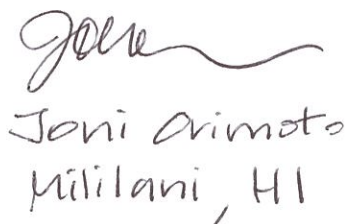 Joni Arimoto
Mililani, HI